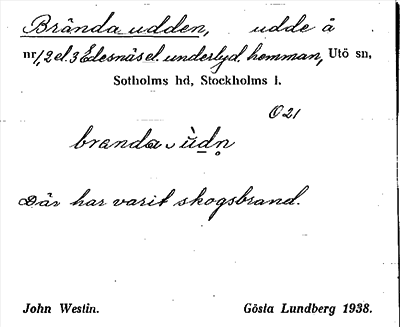 Brända udden, udde å
nr 1,2 el. 3 Edesnäs el. underlyd. hemman, Utö sn,
Sotholms hd, Stockholms l.
O 21
branda ùdn̥
Där har varit skogsbrand.
John Westin. Gösta Lundberg 1938.